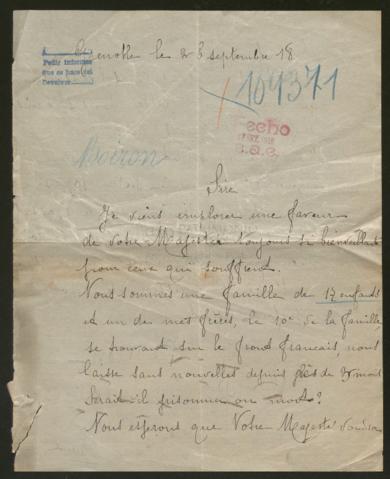 Grenoble le 23 septembre 18
Prière informer
que ce jour
109371
echo
Moiron
Sire
Je viens implorer une faveur
de votre Majesté toujours si bienveillante
pour ceux qui souffrent.
Nous sommes une famille de 17 enfants
et un de mes frères, le 10e de la famille
se trouvant sur le front français, nous
laisse sans nouvelles depuis plus de mois
Serait-il prisonnier ou mort?
Nous espérons que Votre Majesté voudra